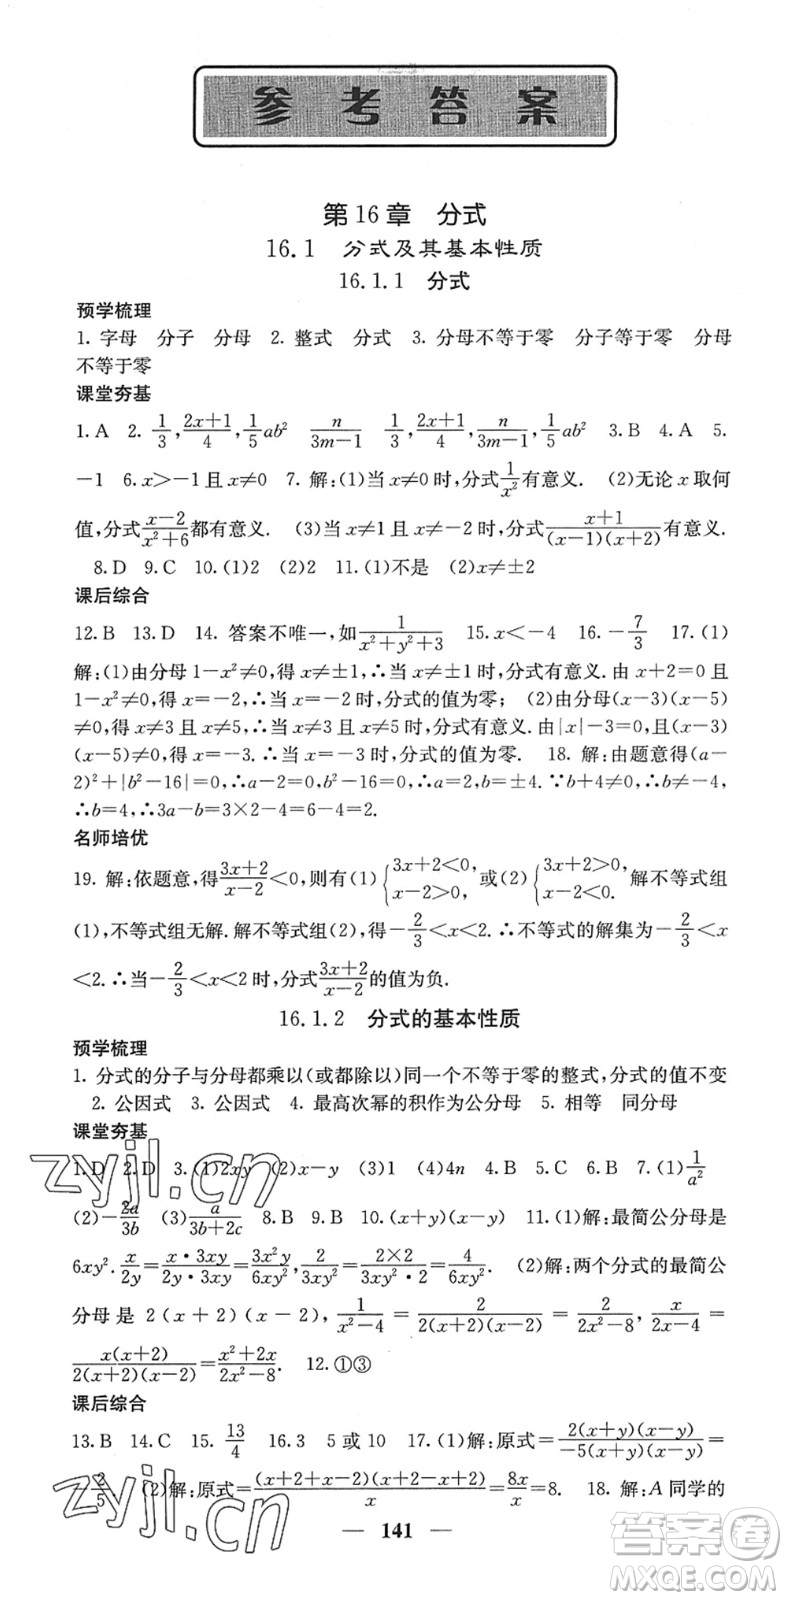 参考答案
第16章 分式
16.1 分式及其基本性质
16.1.1 分式
预学梳理
1. 字母 分子 分母 2. 整式 分式 3. 分母不等于零 分子等于零 分母
不等于零
课堂夯基
1. A 2. 1/3, (2x+1)/4, 1/5 ab² n/(3m−1) 1/3, (2x+1)/4, n/(3m−1), 1/5 ab² 3. B 4. A 5.
−1 6. x>−1且x≠0 7. 解:(1)当x≠0时,分式1/x²有意义. (2)无论x取何
值,分式(x−2)/(x²+6)都有意义. (3)当x≠1且x≠−2时,分式(x+1)/((x−1)(x+2))有意义.
8. D 9. C 10. (1)2 (2)2 11. (1)不是 (2)x≠±2
课后综合
12. B 13. D 14. 答案不唯一,如1/(x²+y²+3) 15. x<−4 16. −7/3 17. (1)
解:(1)由分母1−x²≠0,得x≠±1,∴当x≠±1时,分式有意义.由x+2=0且
1−x²≠0,得x=−2,∴当x=−2时,分式的值为零; (2)由分母(x−3)(x−5)
≠0,得x≠3且x≠5,∴当x≠3且x≠5时,分式有意义.由|x|−3=0,且(x−3)
(x−5)≠0,得x=−3.∴当x=−3时,分式的值为零. 18. 解:由题意得(a−
2)²+|b²−16|=0,∴a−2=0,b²−16=0,∴a=2,b=±4.∵b+4≠0,∴b≠−4,
∴b=4,∴3a−b=3×2−4=6−4=2.
名师培优
19. 解:依题意,得(3x+2)/(x−2)<0,则有(1){3x+2<0, x−2>0, 或(2){3x+2>0, x−2<0. 解不等式组
(1),不等式组无解.解不等式组(2),得−2/3<x<2.∴不等式的解集为−2/3<x
<2.∴当−2/3<x<2时,分式(3x+2)/(x−2)的值为负.
16.1.2 分式的基本性质
预学梳理
1. 分式的分子与分母都乘以(或都除以)同一个不等于零的整式,分式的值不变
2. 公因式 3. 公因式 4. 最高次幂的积作为公分母 5. 相等 同分母
课堂夯基
1. D 2. D 3. (1)2xy (2)x−y (3)1 (4)4n 4. B 5. C 6. B 7. (1)1/a²
(2)−2a/3b (3)a/(3b+2c) 8. B 9. B 10. (x+y)(x−y) 11. (1)解:最简公分母是
6xy². x/2y=(x·3xy)/(2y·3xy)=3x²y/6xy², 2/3xy²=(2×2)/(3xy²·2)=4/6xy². (2)解:两个分式的最简公
分母是 2(x+2)(x−2), 1/(x²−4)=2/(2(x+2)(x−2))=2/(2x²−8), x/(2x−4)=
x(x+2)/(2(x+2)(x−2))=(x²+2x)/(2x²−8). 12. ①③
课后综合
13. B 14. C 15. 13/4 16. 3 5或10 17. (1)解:原式=2(x+y)(x−y)/(−5(x+y)(x−y))=
−2/5. (2)解:原式=(x+2+x−2)(x+2−x+2)/x=8x/x=8. 18. 解:A同学的
— 141 —
zyjl.cn
zyjl.cn
答案卷
MXQE.COM